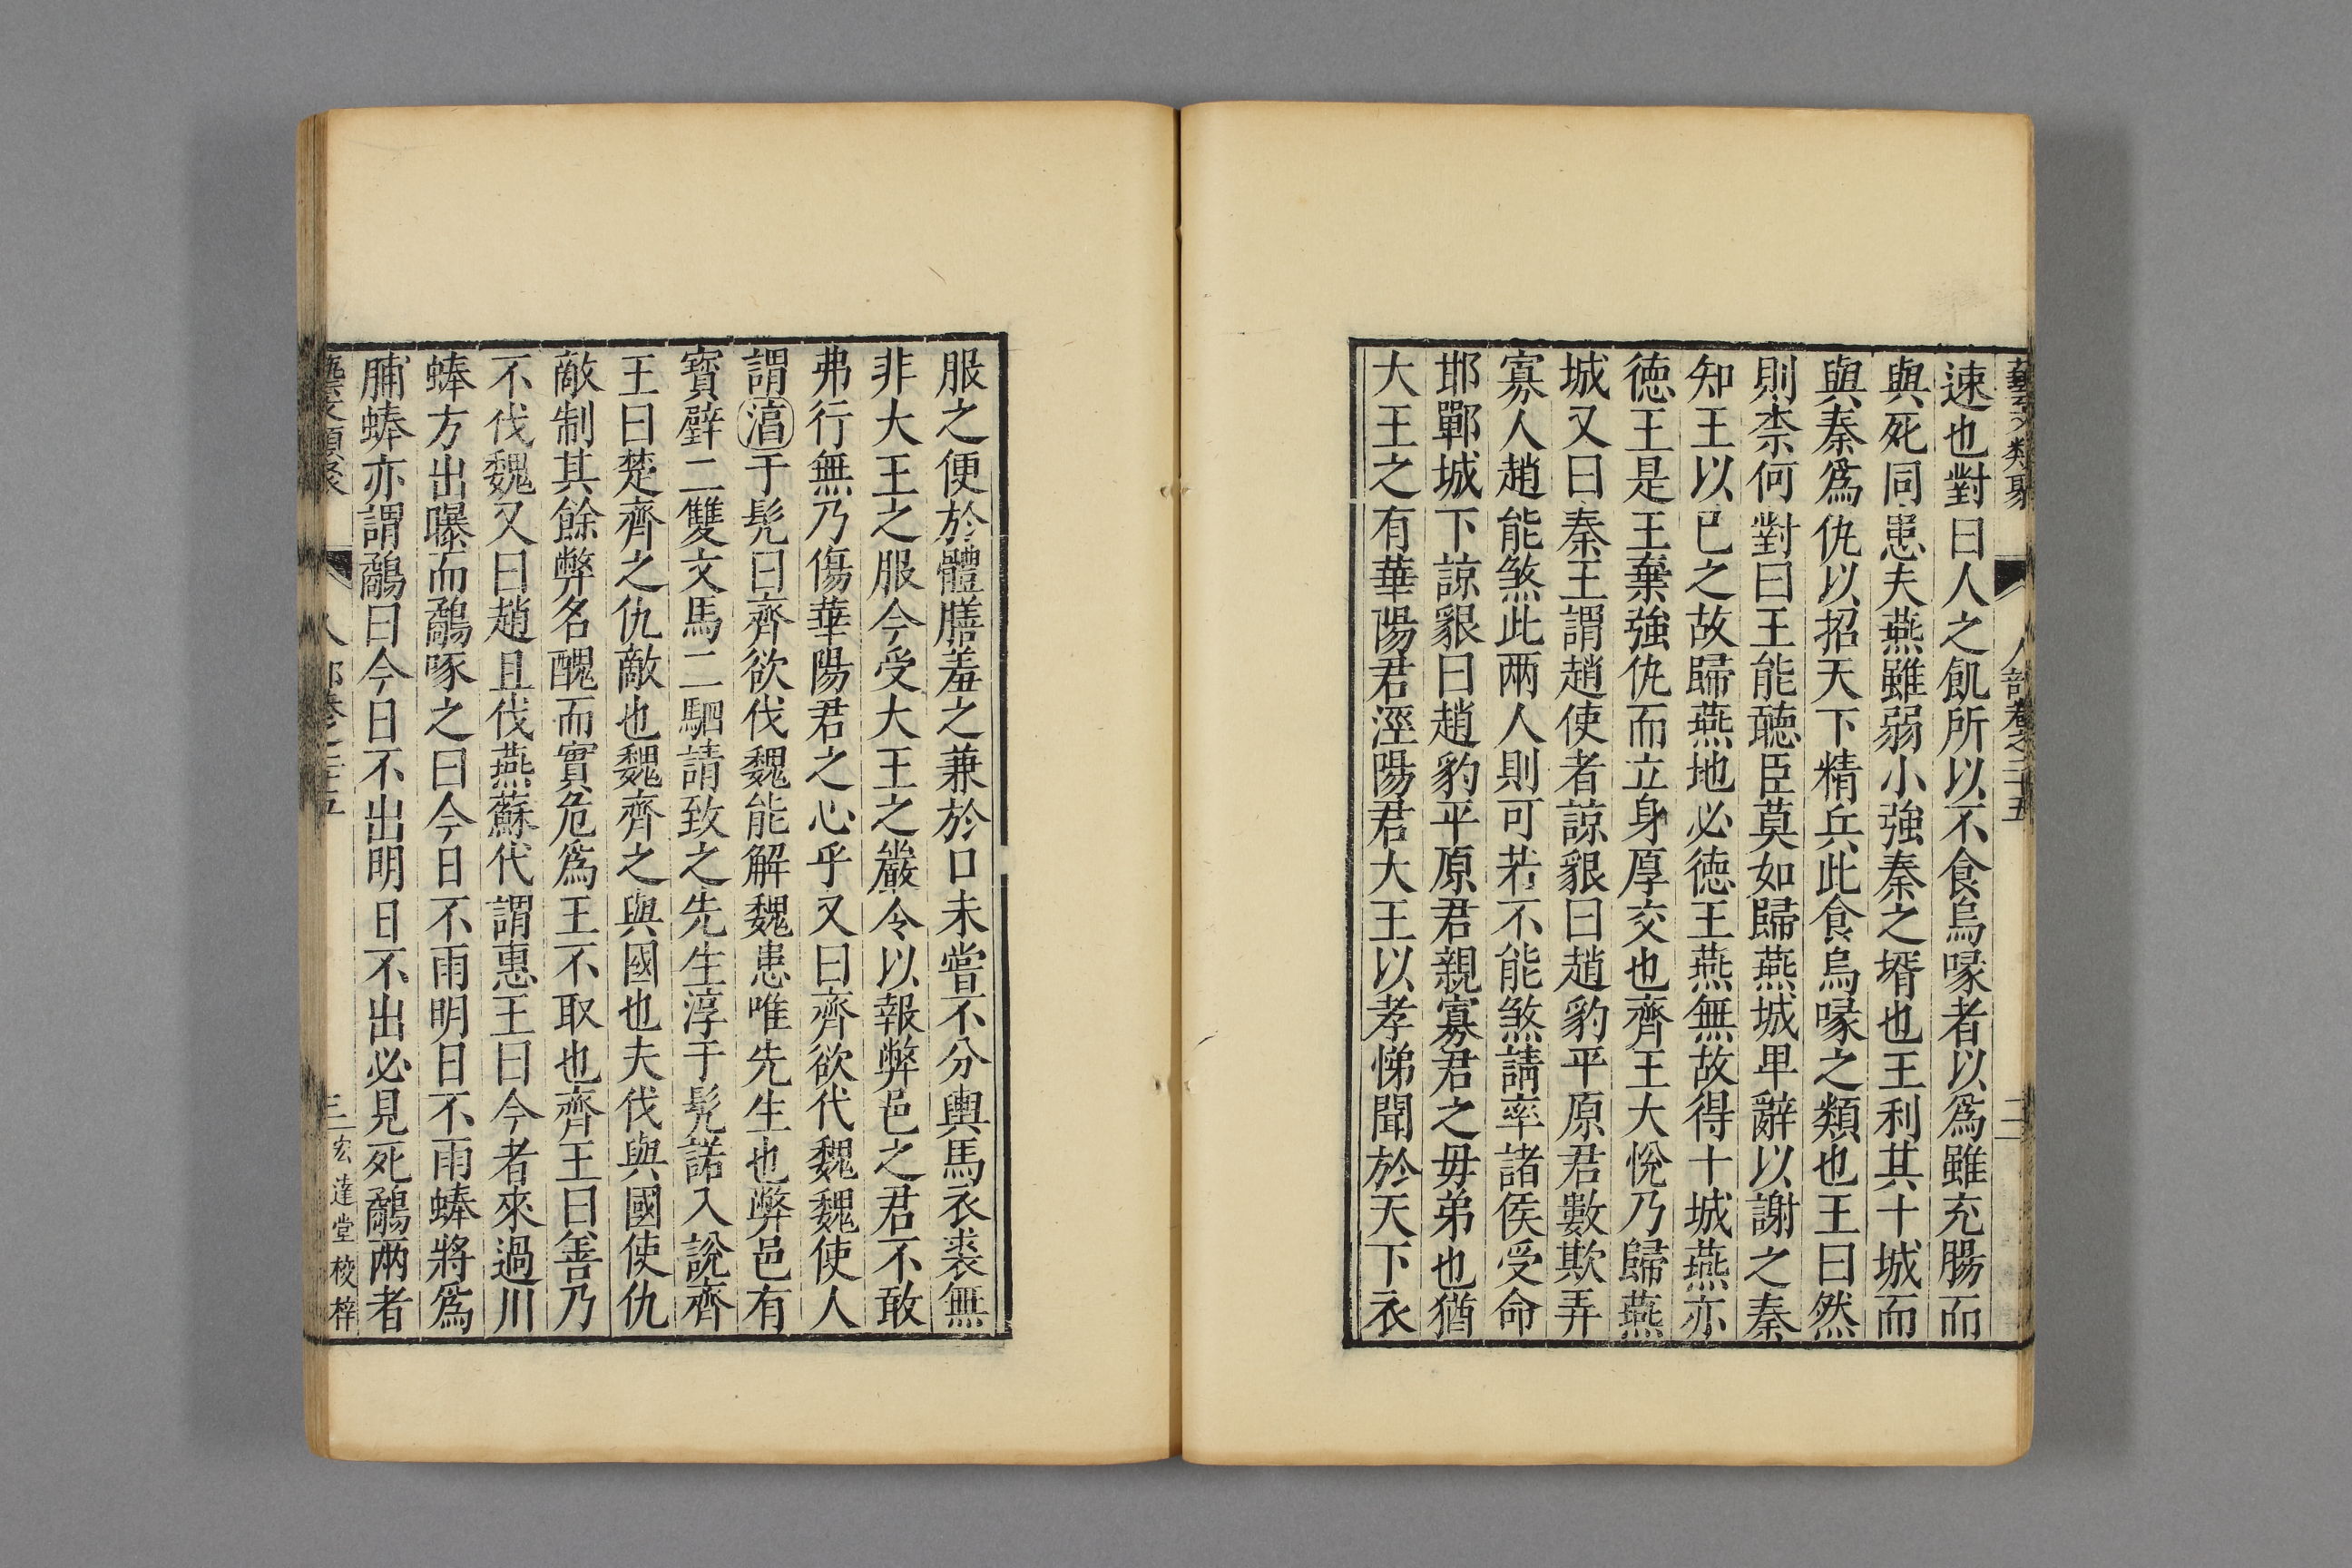 藝文類聚 人部卷之二十五 二
速也對曰人之飢所以不食烏喙者以爲雖充腸而
與死同患夫燕雖弱小強秦之壻也王利其十城而
與秦爲仇以招天下精兵此食烏喙之類也王曰然
則柰何對曰王能聽臣莫如歸燕城卑辭以謝之秦
知王以已之故歸燕地必德王燕無故得十城燕亦
德王是王棄強仇而立身厚交也齊王大悅乃歸燕
城又曰秦王謂趙使者諒貇曰趙豹平原君數欺弄
寡人趙能煞此兩人則可若不能煞請率諸侯受命
邯鄲城下諒貇曰趙豹平原君親寡君之毋弟也猶
大王之有華陽君涇陽君大王以孝悌聞於天下衣
服之便於體膳羞之兼於口未嘗不分輿馬衣裘無
非大王之服今受大王之嚴令以報弊邑之君不敢
弗行無乃傷華陽君之心乎又曰齊欲代魏魏使人
謂湻于髠曰齊欲伐魏能解魏患唯先生也弊邑有
寶璧二雙文馬二駟請致之先生淳于髠諾入說齊
王曰楚齊之仇敵也魏齊之與國也夫伐與國使仇
敵制其餘弊名醜而實危爲王不取也齊王曰善乃
不伐魏又曰趙且伐燕蘇代謂惠王曰今者來過川
蜯方出曝而鷸啄之曰今日不雨明日不雨蜯將爲
脯蜯亦謂鷸曰今日不出明日不出必見死鷸兩者
藝文類聚 人部卷二十五 三 宏達堂校梓